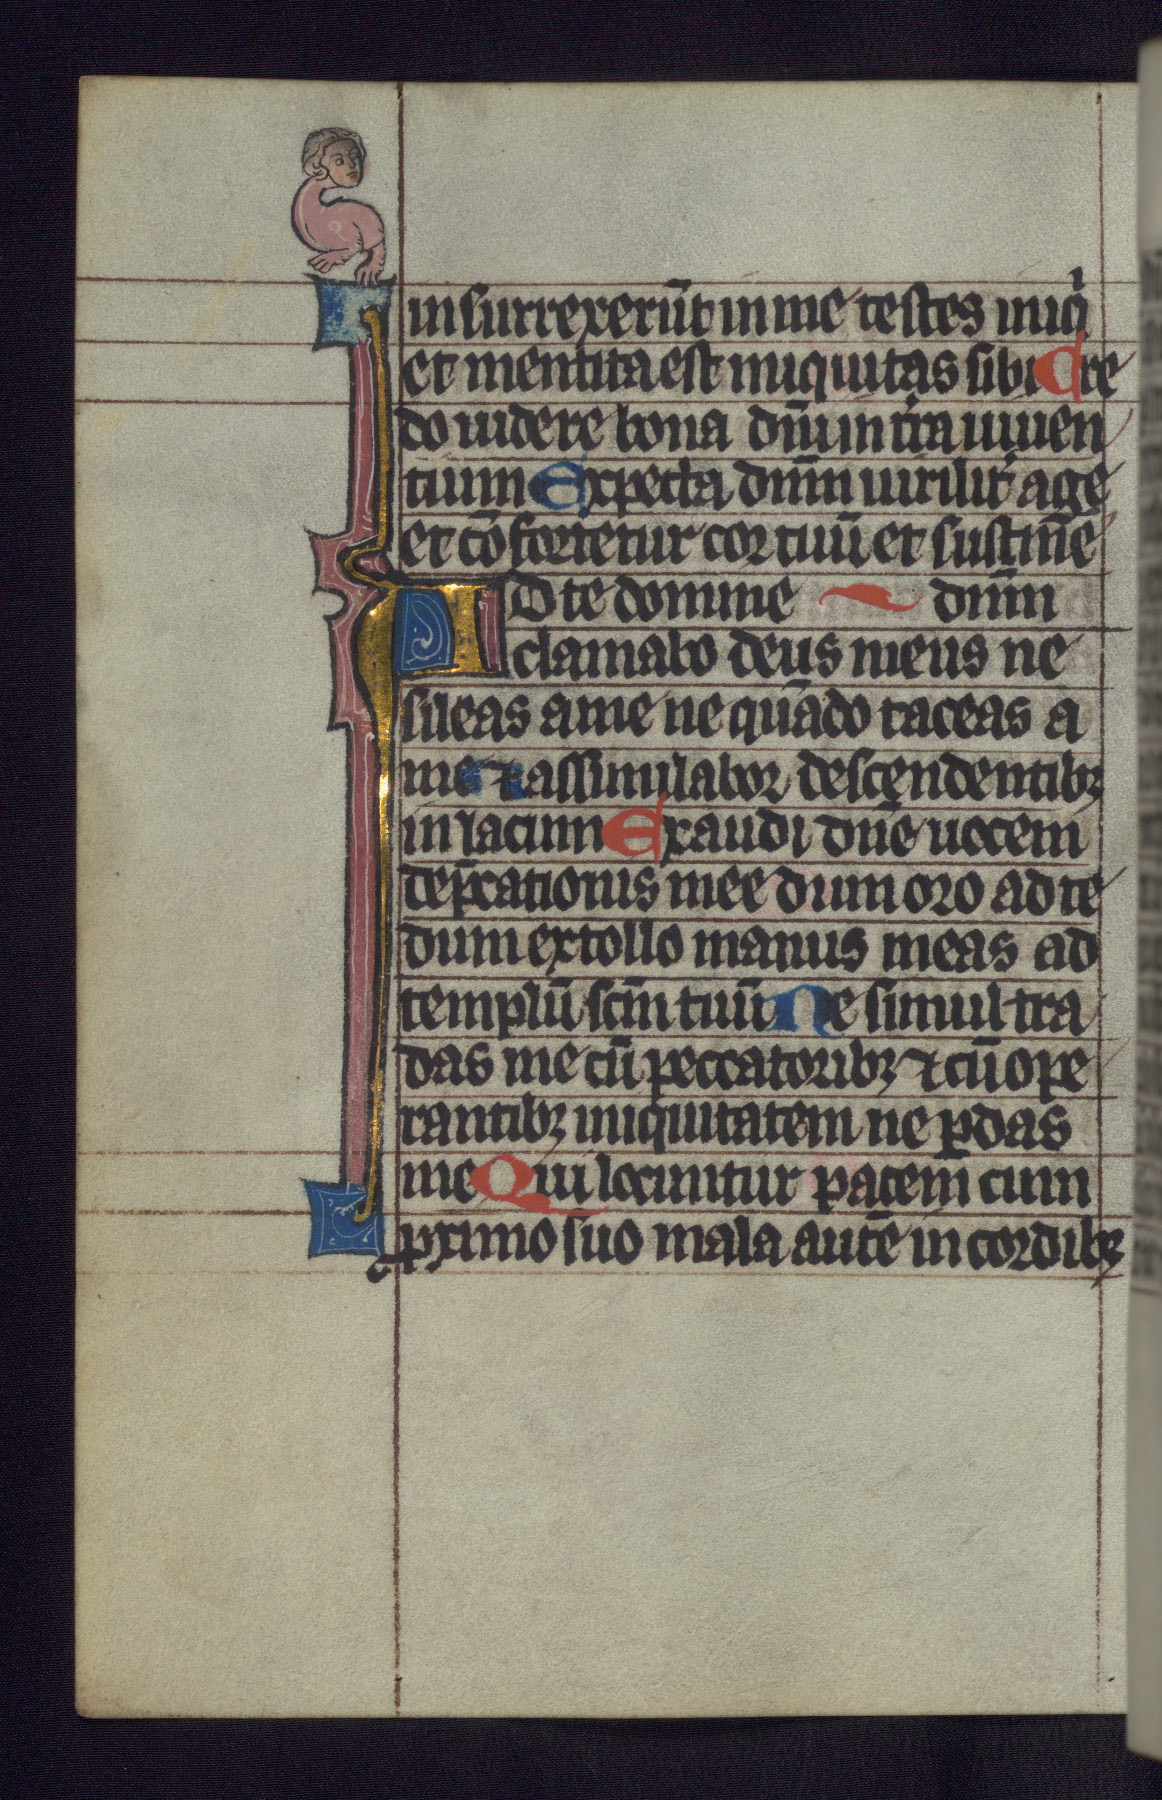 insurrexerūt in me testes iniqͥ
et mentita est iniquitas sibi Cre
do uidere bona dn̄i in tr̄a uiuen
tium Expecta dn̄m uirilit̄ age
et cōfortetur cor tuū et sustine
dn̄m
AD te domine
clamabo deus meus ne
sileas a me ne quādo taceas a
me ⁊ assimilabor descendentibꝫ
in lacum Exaudi dn̄e uocem
dep̄cationis mee dum oro ad te
dum extollo manus meas ad
templū scm̄ tuū Ne simul tra
das me cū peccatoribꝫ ⁊ cū ope
rantibꝫ iniquitatem ne ꝑdas
me Qui locuntur pacem cum
ꝓximo suo mala autē in cordibꝫ